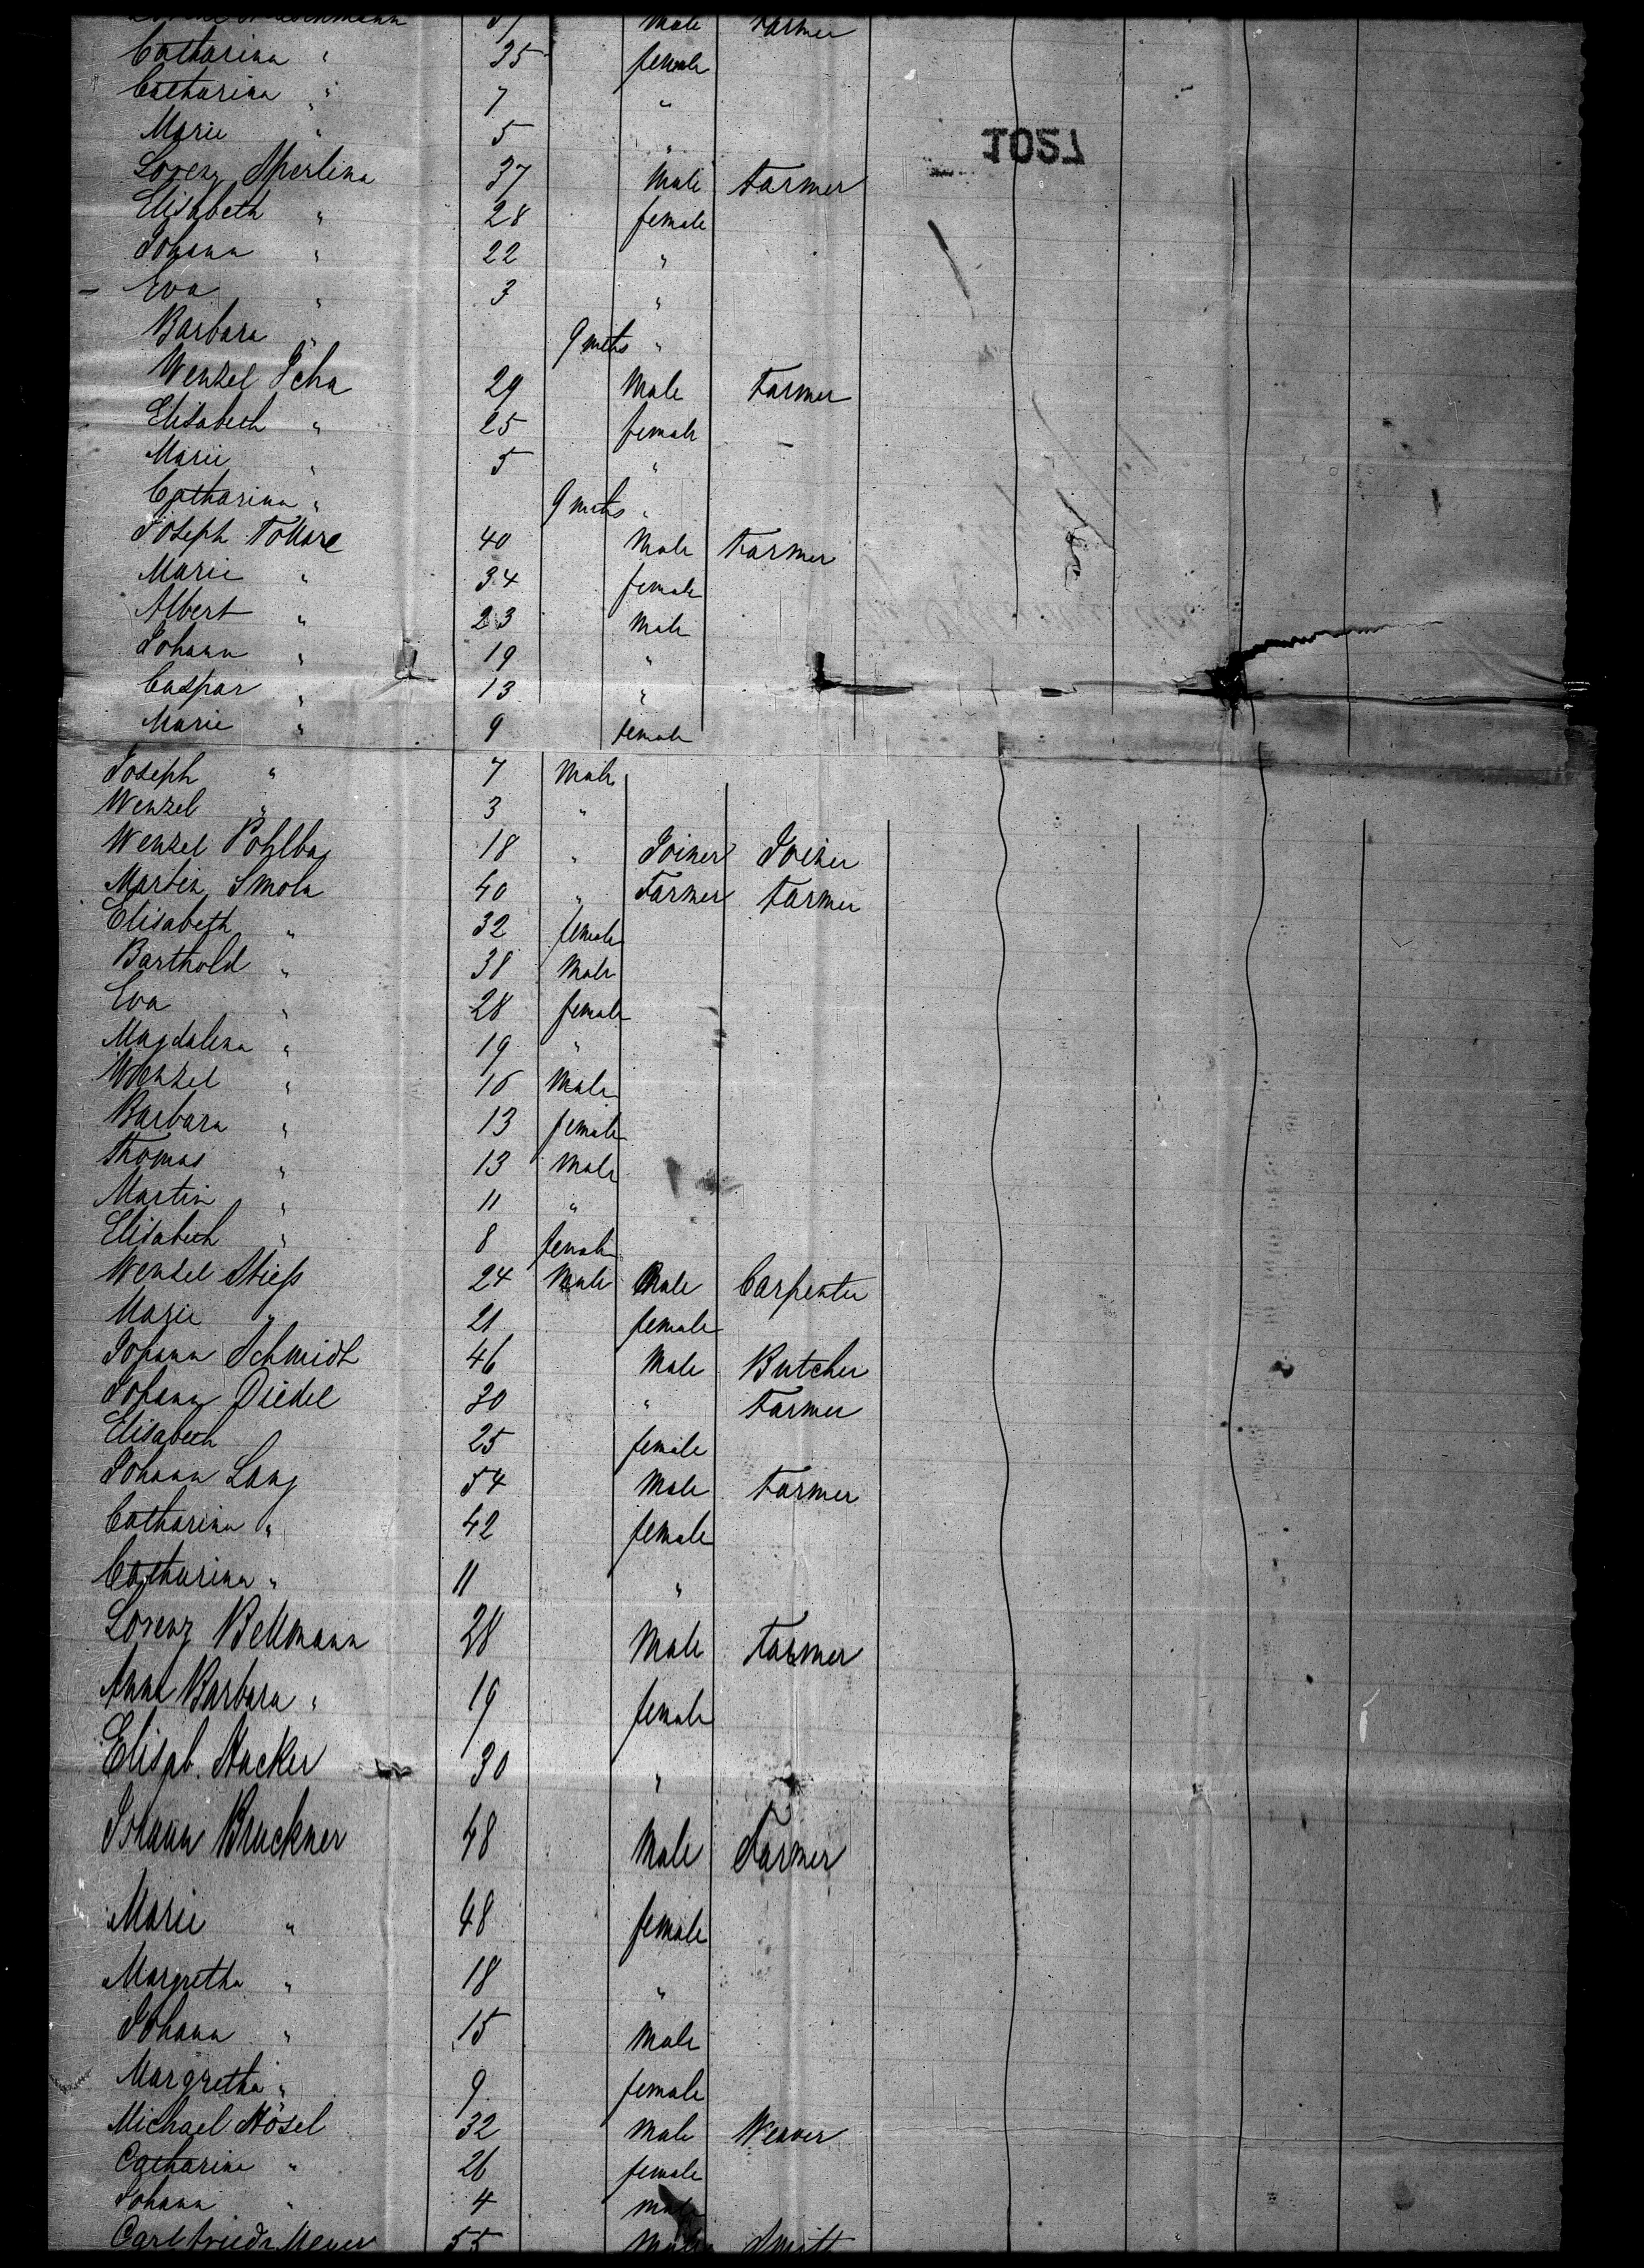 male Farmer
Catharina " 35 female
Catharina " 7 "
Marie " 5 "
1027
Lorenz Sperlina 37 Male Farmer
Elisabeth " 28 female
Johann " 22 "
Eva " 3 "
Barbara " 9 mths "
Wenzel Icha 29 Male Farmer
Elisabeth " 25 female
Marie " 5 "
Catharina " 9 mths "
Joseph 40 Male Farmer
Marie " 34 female
Albert " 23 Male
Johann " 19 "
Caspar " 13 "
Marie " 9 female
Joseph " 7 Male
Wenzel " 3 "
Wenzel 18 " Joiner Joiner
Martin Smola 40 " Farmer Farmer
Elisabeth " 32 female
Barthold " 38 Male
Eva " 28 female
Magdalena " 19 "
Wenzel " 16 Male
Barbara " 13 female
Thomas " 13 Male
Martin " 11 "
Elisabeth " 8 female
Wenzel Stieß 24 Male Male Carpenter
Marie " 21 female
Johann Schmidt 46 Male Butcher
Johann Diedel 30 " Farmer
Elisabeth 25 female
Johann Lang 54 Male Farmer
Catharina " 42 female
Catharina " 11 "
Lorenz Bellmann 28 Male Farmer
Anna Barbara " 19 female
Elisab. Hacker 30 "
Johann Bruckner 48 Male Farmer
Marie " 48 female
Margretha " 18 "
Johann " 15 Male
Margretha " 9 female
Michael Hösel 32 Male Weaver
Catharine " 26 female
Johann " 4 male
Carl Friedr Meyer 55 Male Smith